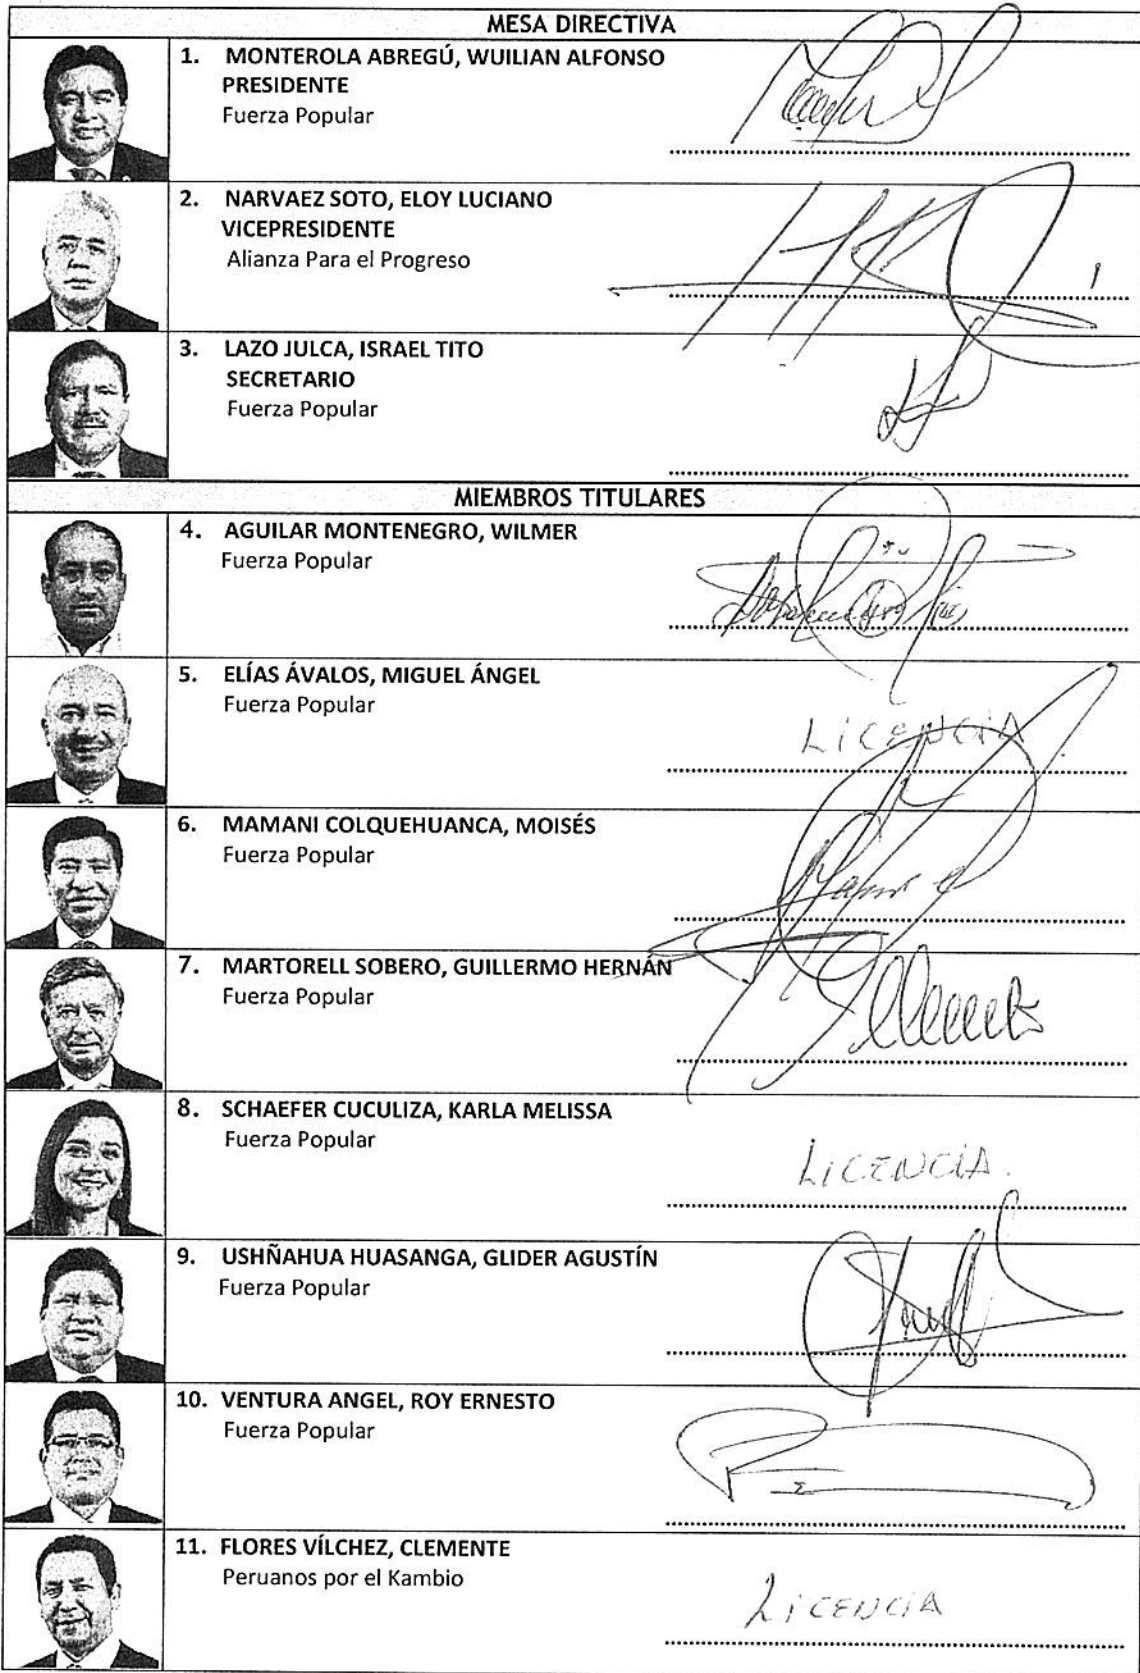 MESA DIRECTIVA
1. MONTEROLA ABREGÚ, WUILIAN ALFONSO
PRESIDENTE
Fuerza Popular
2. NARVAEZ SOTO, ELOY LUCIANO
VICEPRESIDENTE
Alianza Para el Progreso
3. LAZO JULCA, ISRAEL TITO
SECRETARIO
Fuerza Popular
MIEMBROS TITULARES
4. AGUILAR MONTENEGRO, WILMER
Fuerza Popular
5. ELÍAS ÁVALOS, MIGUEL ÁNGEL
Fuerza Popular
LICENCIA
6. MAMANI COLQUEHUANCA, MOISÉS
Fuerza Popular
7. MARTORELL SOBERO, GUILLERMO HERNÁN
Fuerza Popular
8. SCHAEFER CUCULIZA, KARLA MELISSA
Fuerza Popular
LICENCIA.
9. USHÑAHUA HUASANGA, GLIDER AGUSTÍN
Fuerza Popular
10. VENTURA ANGEL, ROY ERNESTO
Fuerza Popular
11. FLORES VÍLCHEZ, CLEMENTE
Peruanos por el Kambio
LICENCIA